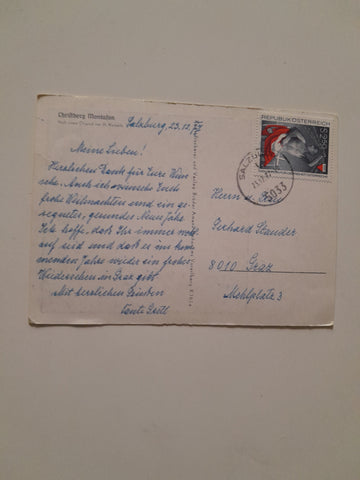 Christberg Montafon.
Nach einem Original von
Salzburg, 23.12.
Meine Lieben!
Herzlichen Dank für Eure Wün-
sche. Auch ich wünsche Euch
frohe Weihnachten und ein ge-
segnetes, gesundes Neues Jahr.
Ich hoffe, daß Ihr immer wohl
auf seid und daß es im kom-
menden Jahre wieder ein frohes
Wiedersehen in Graz gibt.
Mit herzlichen Grüßen
Tante Gretl
REPUBLIK ÖSTERREICH
SALZBURG
5033
Herrn
Gerhard Stander
8010 Graz
Mehlplatz 3